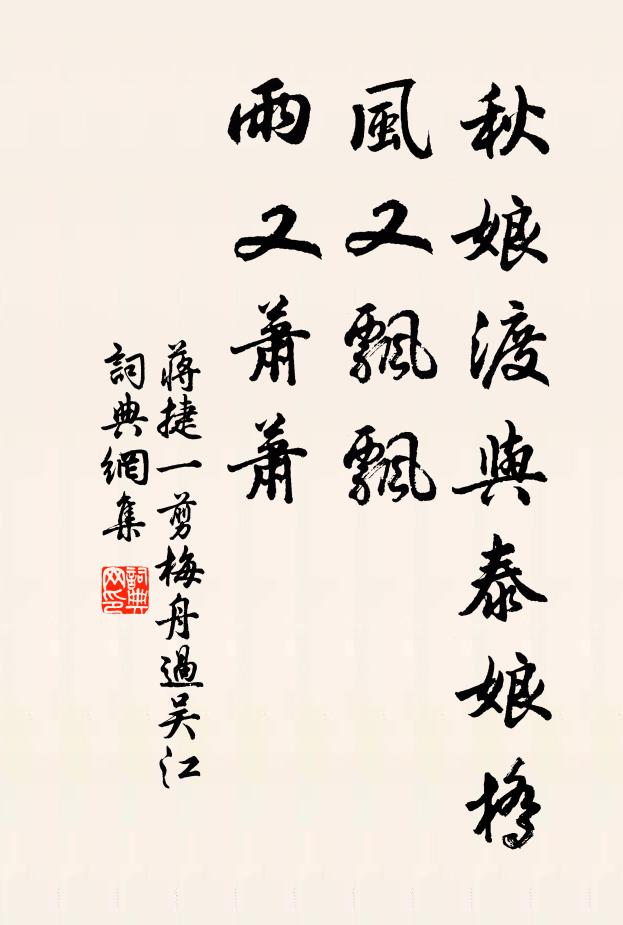 秋娘渡與泰娘橋
風又飄飄
雨又蕭蕭
蔣捷一剪梅舟過吴江
詞典網集
詞典
网印